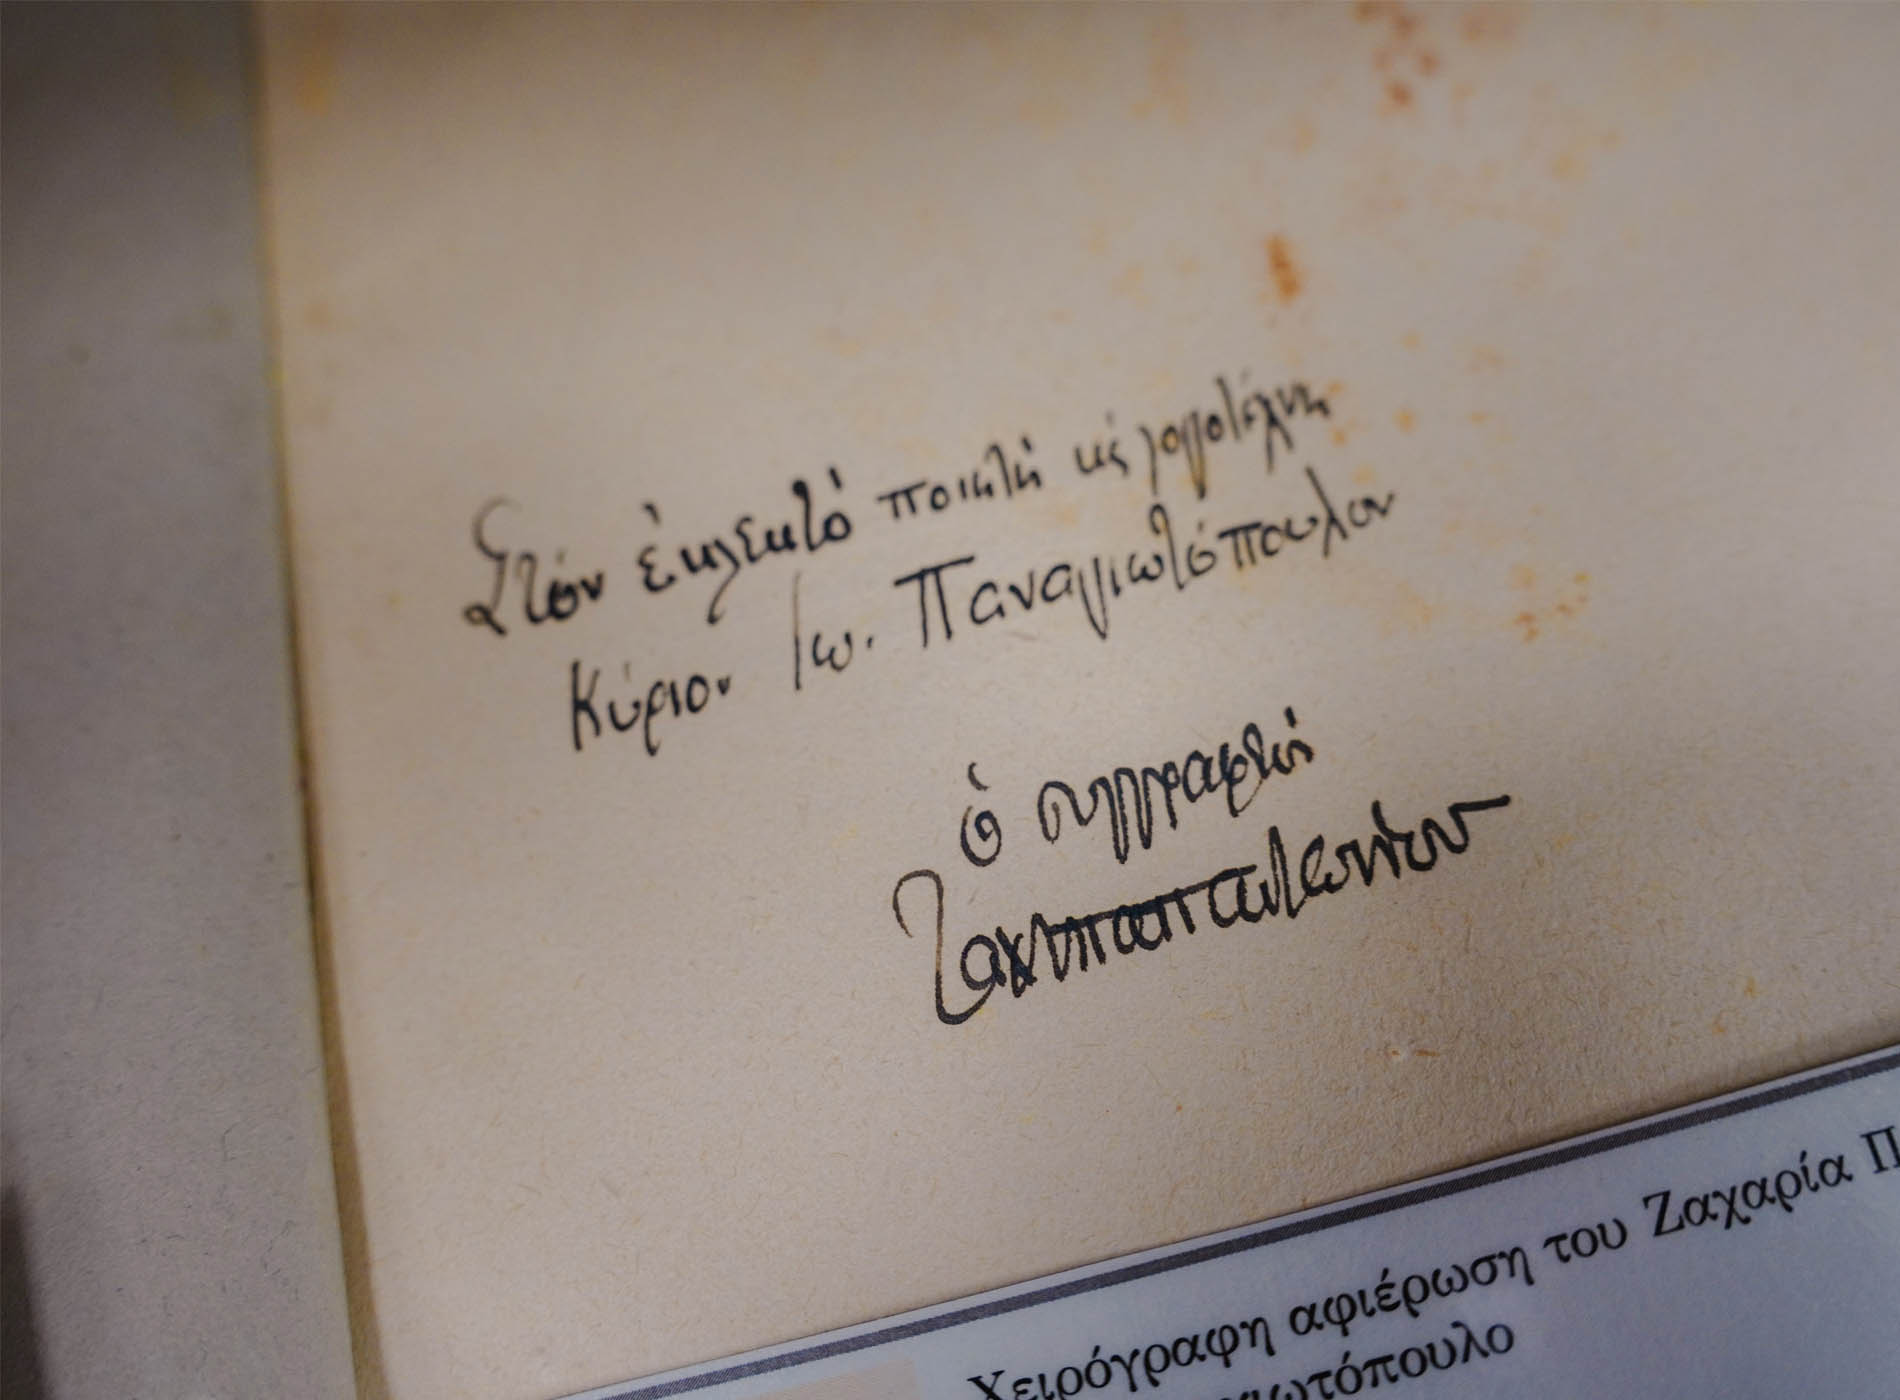 Στὸν ἐκλεκτὸ ποιητὴ κὲ λογοτέχνη
Κύριον Ἰω. Παναγιωτόπουλον
ὁ συγγραφεὺς
Ζαχ Παπαντωνίου
Χειρόγραφη αφιέρωση του Ζαχαρία Π
ιωτόπουλο